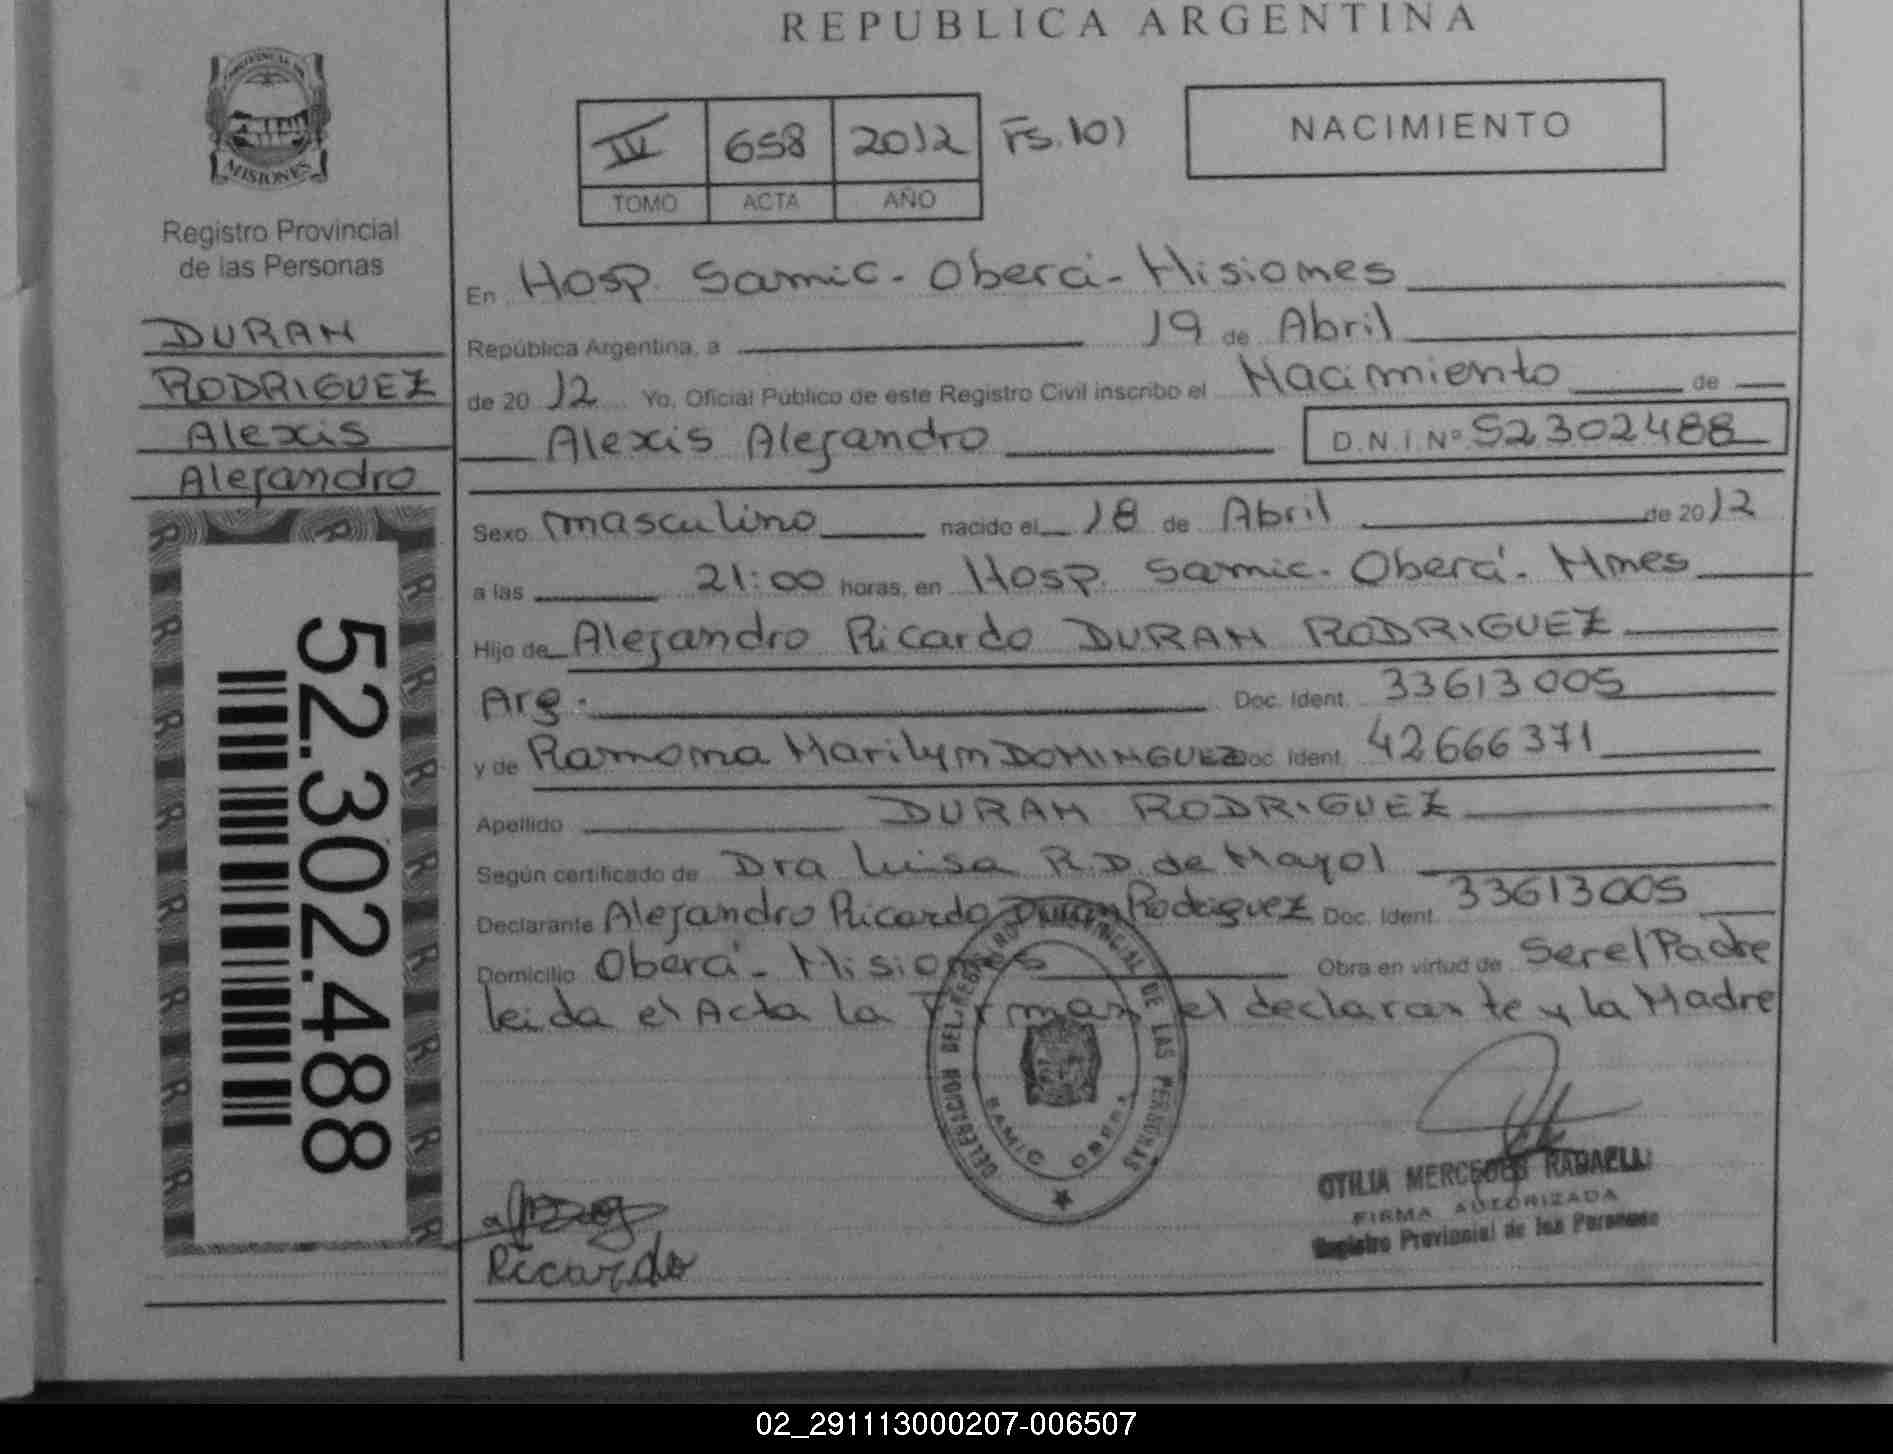 REPUBLICA ARGENTINA
PROVINCIA DE
MISIONES
Registro Provincial
de las Personas
DURAN
RODRIGUEZ
Alexis
Alejandro
52.302.488
IV 658 2012 Fs. 101
TOMO ACTA AÑO
NACIMIENTO
En Hosp. Samic - Oberá - Misiones
República Argentina, a 19 de Abril
de 2012 Yo, Oficial Público de este Registro Civil inscribo el Nacimiento de
Alexis Alejandro D.N.I. Nº 52302488
Sexo masculino nacido el 18 de Abril de 2012
a las 21:00 horas, en Hosp. Samic. Oberá. Mnes
Hijo de Alejandro Ricardo DURAN RODRIGUEZ
Arg. Doc. Ident. 33613005
y de Ramona Marilyn DOMINGUEZ Doc. Ident. 42666371
Apellido DURAN RODRIGUEZ
Según certificado de Dra Luisa R.D. de Mayol
Declarante Alejandro Ricardo Duran Rodriguez Doc. Ident. 33613005
Domicilio Oberá - Misiones Obra en virtud de Ser el Padre
leida el Acta la Firman el declarante y la Madre
DELEGACION DEL REGISTRO PROVINCIAL DE LAS PERSONAS
SAMIC OBERA
OTILIA MERCEDES RADAELLI
FIRMA AUTORIZADA
Registro Provincial de las Personas
Ricardo
02_291113000207-006507